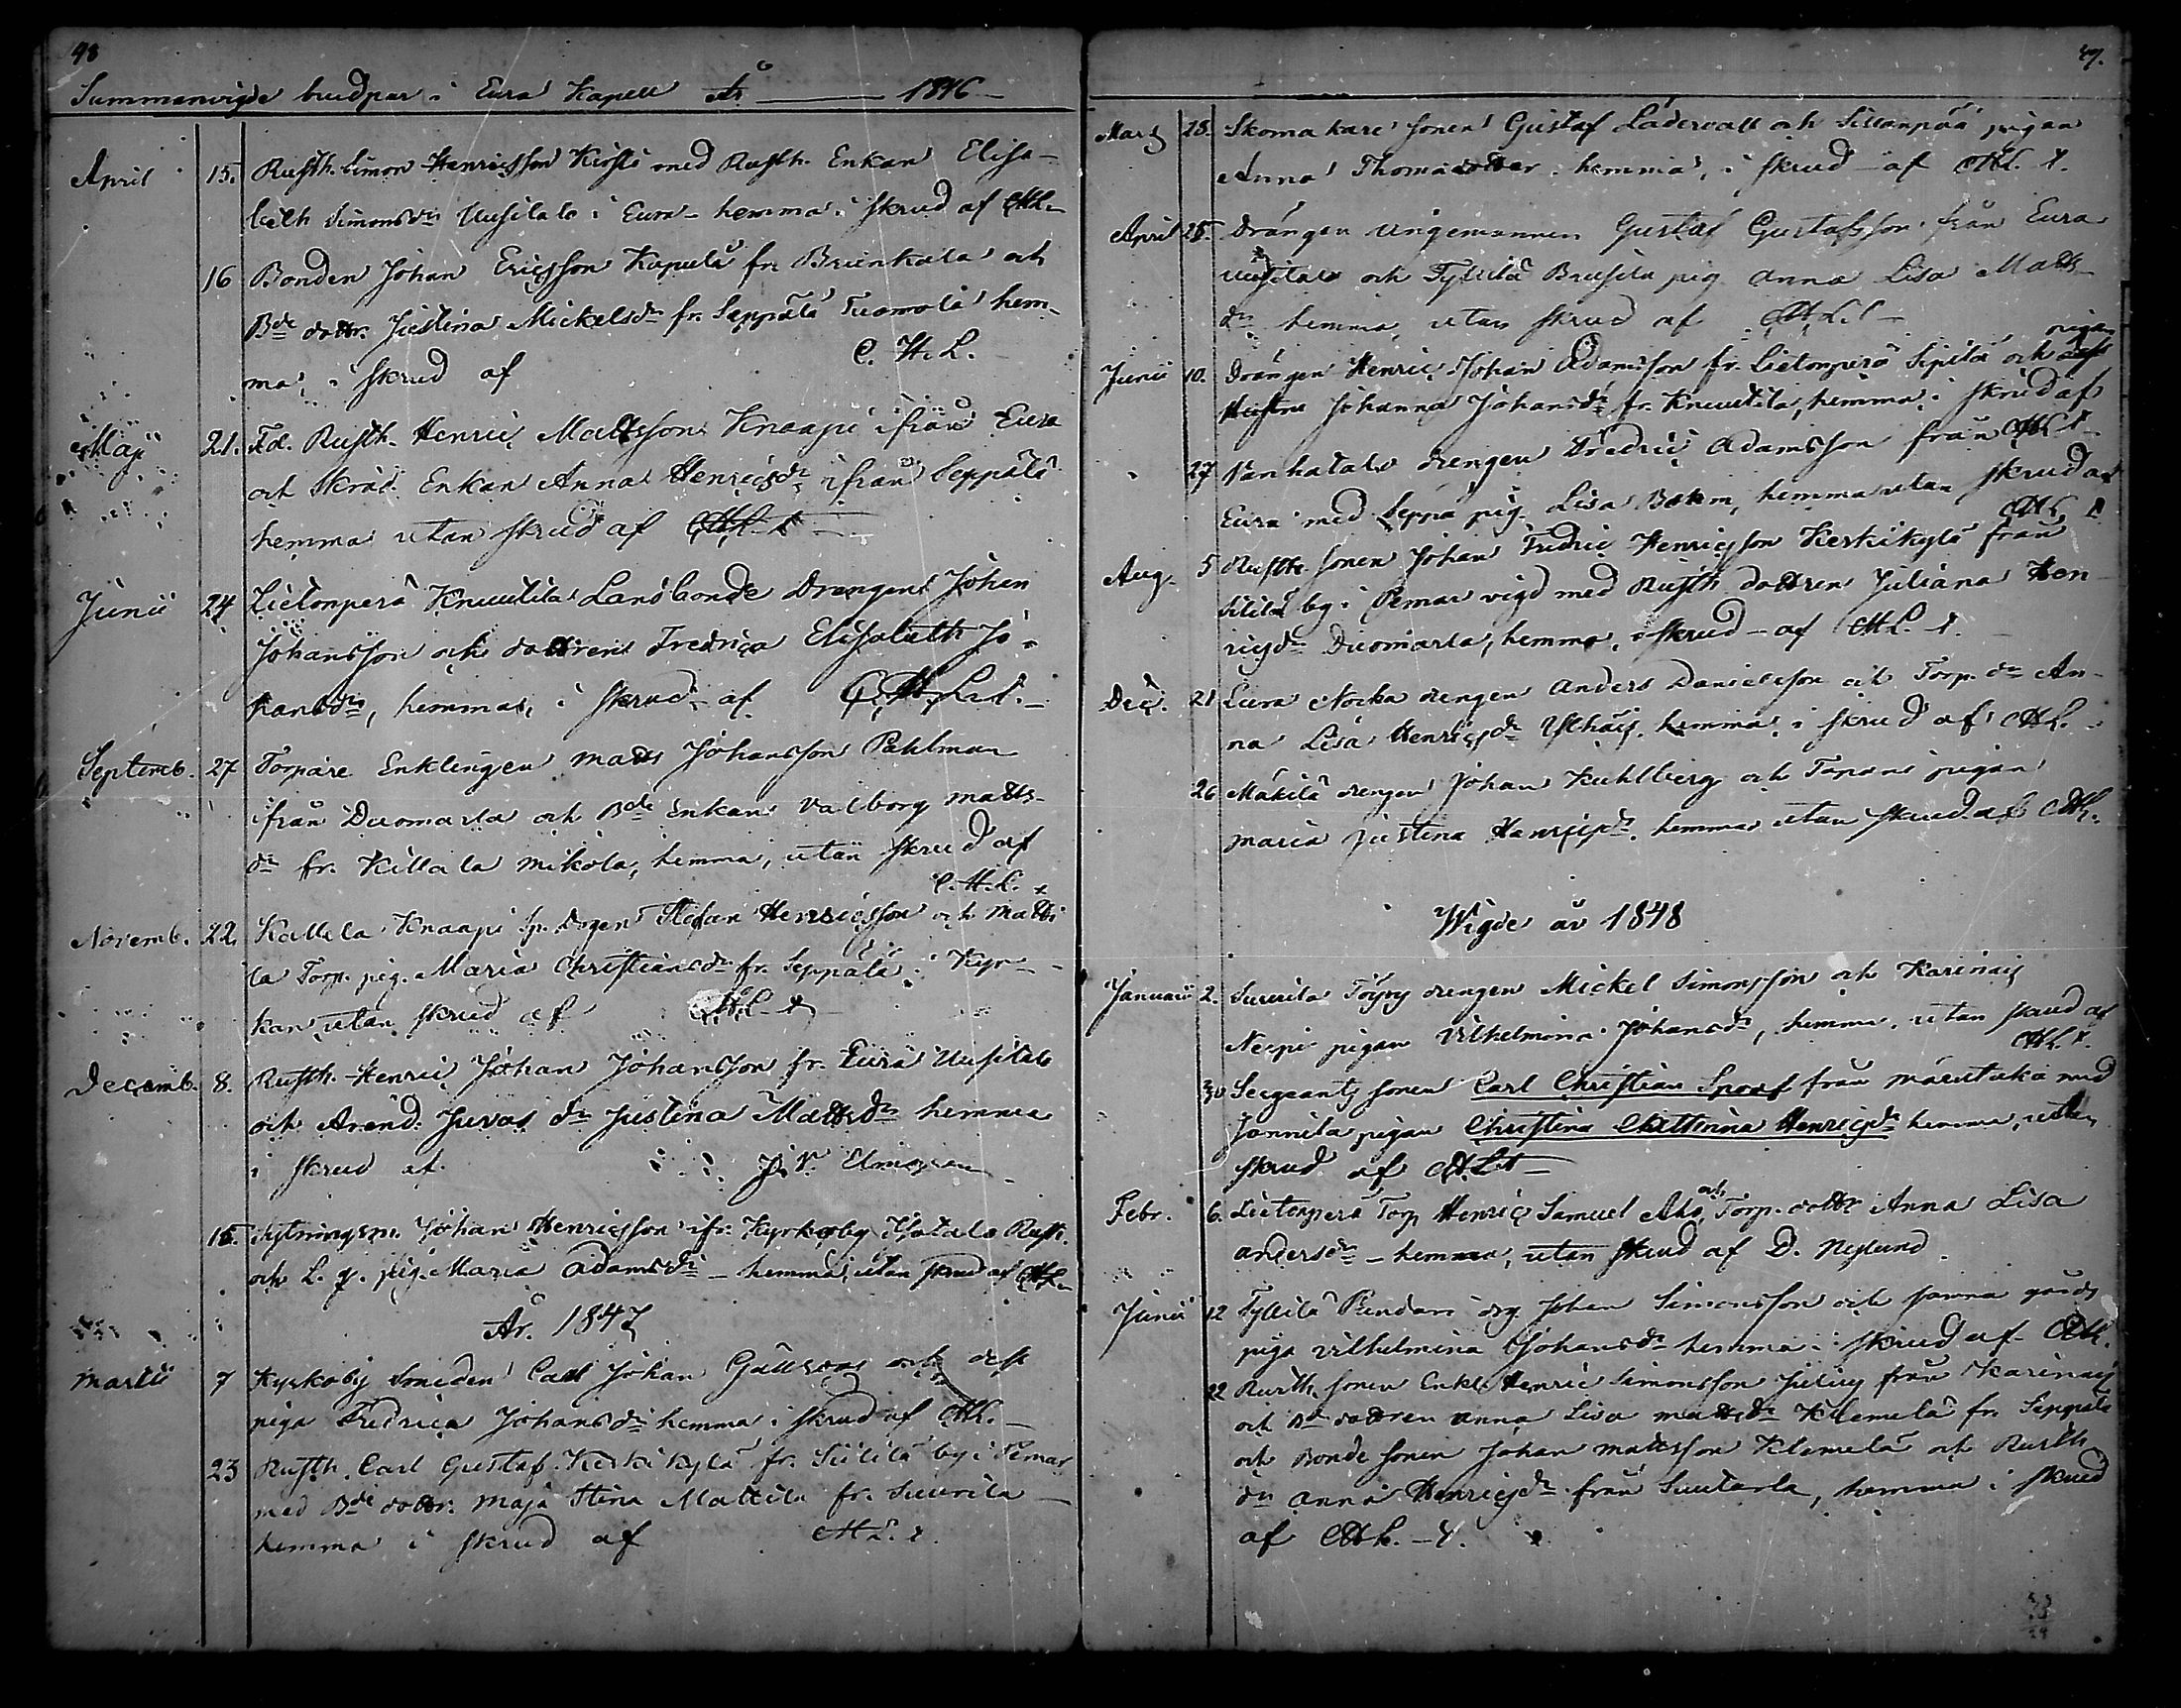 48
Sammanvigde brudpar i Eura Kapell År 1846
April 15. Rusth. Simon Henricsson Kirsti med Rusth. Enkan Elisa-
beth Simonsdr Uusitalo i Eura - hemma i skrud af CHL
16 Bonden Johan Ericsson Kapulä fr. Brunkala och
Bde dottr. Justina Mickelsdr fr. Seppälä Tuomola hem-
ma, i skrud af C. H. L.
Maji 21. Fd. Rusth. Henric Mattsson Knaapi ifrån Eura
och Skräd. Enkan Anna Henricsdr ifrån Seppälä
hemma utan skrud af CHL
Junii 24 Lietonperä Knuutila Landbonde Drengen Johan
Johansson och dottren Fredrica Elisabeth Jo-
hansdr, hemma, i skrud af C.H.L.
Septemb. 27 Torpare Enklingen Matts Johansson Pahlman
ifrån Duomarla och Bde Enkan Valborg Matts-
dr fr. Killala Mikola, hemma, utan skrud af
C. H. L.
Novemb. 22. Kallela Knaapi Drgen Stefan Henricsson och Matti
la Torp. pig. Maria Christiansdr fr. Seppälä i Kyr-
kan utan skrud af CHL
Decemb. 8. Rusth. Henric Johan Johansson fr. Eura Uusitalo
och Arend. Juvas dr Justina Mattsdr hemma
i skrud af Elmgren
15. Johan Henricsson ifr. Kyrkoby Isotalo Rusth.
och pig. Maria Adamsdr - hemma, utan skrud af CHL
År 1847
Martii 7 Kyrkoby Smeden Carl Johan och dess
piga Fredrica Johansdr hemma i skrud af CHL.
23 Rusth. Carl Gustaf Keskikylä fr. Siililä by i Pemar
med Bde dottr. Maja Stina Mattila fr. Suurila
hemma i skrud af CHL.
49.
Mars 23. Skomakare sonen Gustaf Lädervall och Sillanpää pigan
Anna Thomasdotter hemma, i skrud af CHL.
April 25. Drängen ungemannen Gustaf Gustafsson från Eura
Uusitalo och Tyllilä Brusila pig. Anna Lisa Matts-
dr hemma, utan skrud af CHL
pigan
Junii 10. Drängen Henric Johan Adamsson fr. Lietonperä Sipilä och
Hustru Johanna Johansdr fr. Knuutila, hemma i skrud af
27 Vanhatalo drengen Fredric Adamsson från CHL
Eura med Seppä pig. Lisa Bohm, hemma utan skrud af
CHL
Aug. 5 Rusth. sonen Johan Fredric Henricsson Keskikylä från
Siililä by i Pemar vigd med Rusth. dottren Juliana Hen-
ricsdr Duomarla, hemma, i skrud af CHL.
Dec. 21 Eura Nocka drengen Anders Danielsson och Torp. dr An-
na Lisa Henricsdr hemma, i skrud af CHL.
26 Mäkilä drengen Johan Kuhlberg och Tapani pigan
Maria Justina Henricsdr. hemma utan skrud af CHL.
Wigde år 1848
Januarii 2. Suurila Töyry drengen Mickel Simonsson och Karinais
Neipi pigan Vilhelmina Johansdr, hemma, utan skrud af
CHL.
30 Sergeants sonen Carl Christian Spoof från Märutaka med
Jonnila pigan Christina Cattarina Henricsdr hemma, utan
skrud af CHL
och
Febr. 6. Lietonperä Torp. Henric Samuel Aho, Torp. dottr Anna Lisa
Andersdr - hemma, utan skrud af D. Nyslund.
Junii 12 Tyllilä Pundars drg. Johan Simonsson och samma gårds
piga Vilhelmina Johansdr hemma i skrud af CHL.
22 Rusth. sonen Enkl. Henric Simonsson från Karinais
och Bde dottren Anna Lisa Mattsdr Klemelä fr. Seppälä
och Bonde sonen Johan Mattsson Klemelä och Rusth
dr Anna Henricsdr från Suutarla, hemma i skrud
af CHL.